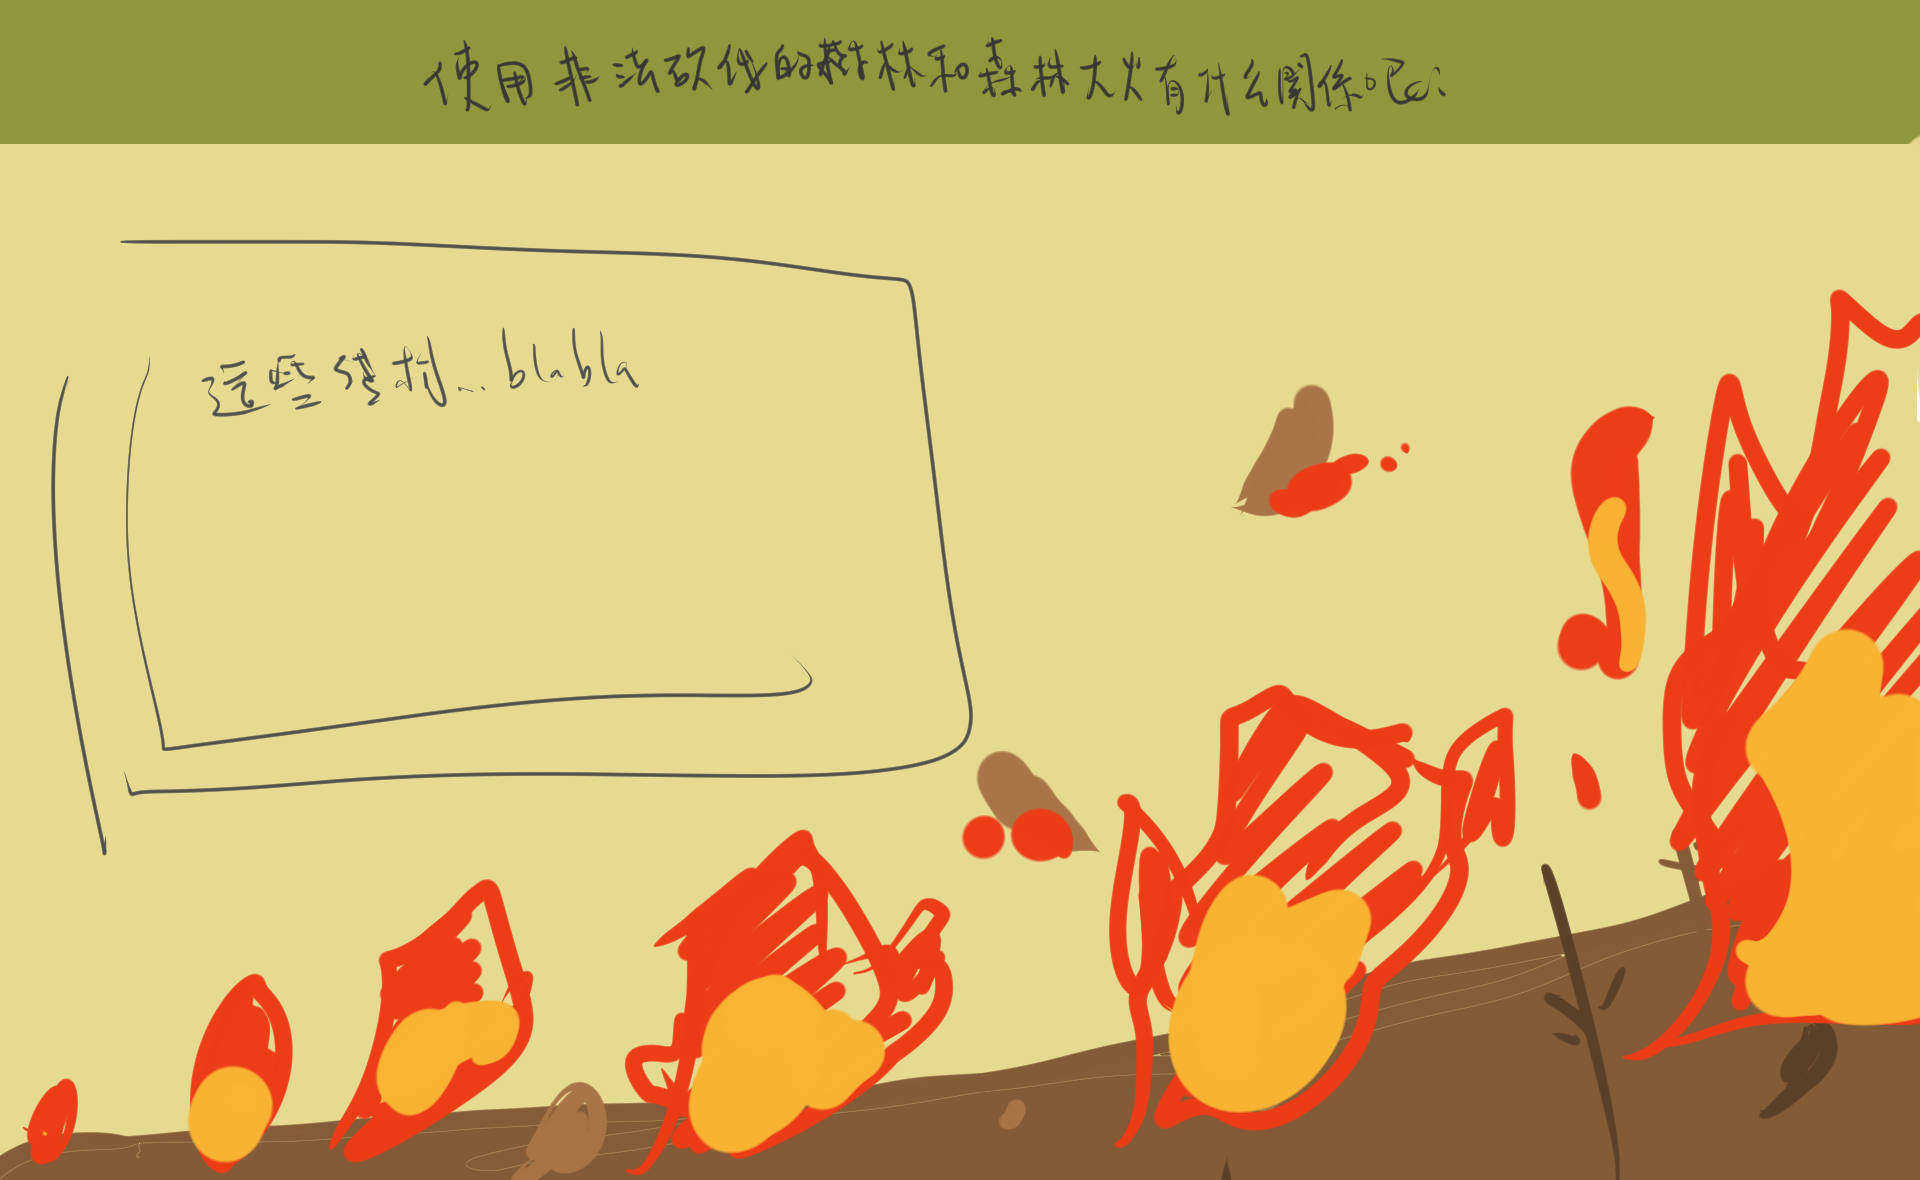 使用非法砍伐的樹林和森林大火有什么關係吧?
這些模型...blabla